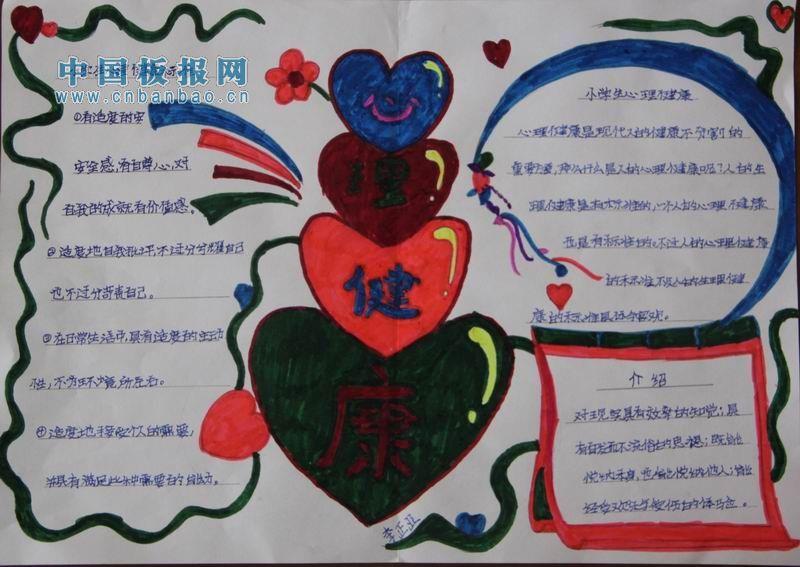 中国板报网
www.cnbanbao.cn
①有适度的安
安全感,有自尊心,对
自我的成就有价值感。
②适度地自我批评,不过分夸耀自己
也不过分苛责自己。
③在日常生活中,具有适度的主动
性,不为环境所左右。
④适度地接受个人的需要,
并具有满足此种需要的能力。
理
健
康
李正
小学生心理健康
心理健康是现代人的健康不可分割的
重要方面,那么什么是人的心理健康呢?人的生
理健康是有标准的,一个人的心理健康
也是有标准的。不过人的心理健康
的标准不及人的生理健
康的标准具体客观。
介绍
对现实具有效率的知觉;具
有自发而不流俗的思想;既能
悦纳本身,也能悦纳他人;